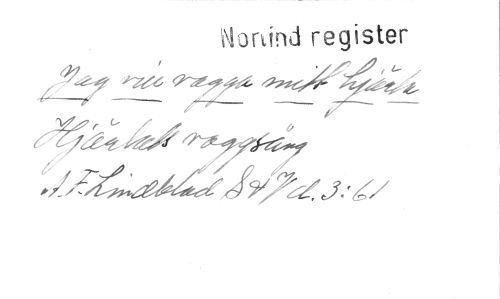 Nomind register
Jag vill vagga mitt hjärta
Hjärtats vaggsång
A.F. Lindblad S & V d. 3:61